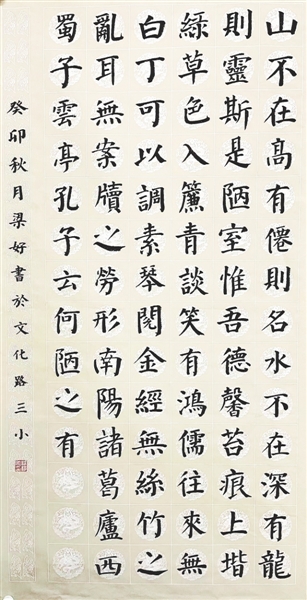 山不在高有僊則名水不在深有龍
則靈斯是陋室惟吾德馨苔痕上堦
綠草色入簾青談笑有鴻儒往來無
白丁可以調素琴閱金經無絲竹之
亂耳無案牘之勞形南陽諸葛廬西
蜀子雲亭孔子云何陋之有
癸卯秋月梁好書於文化路三小